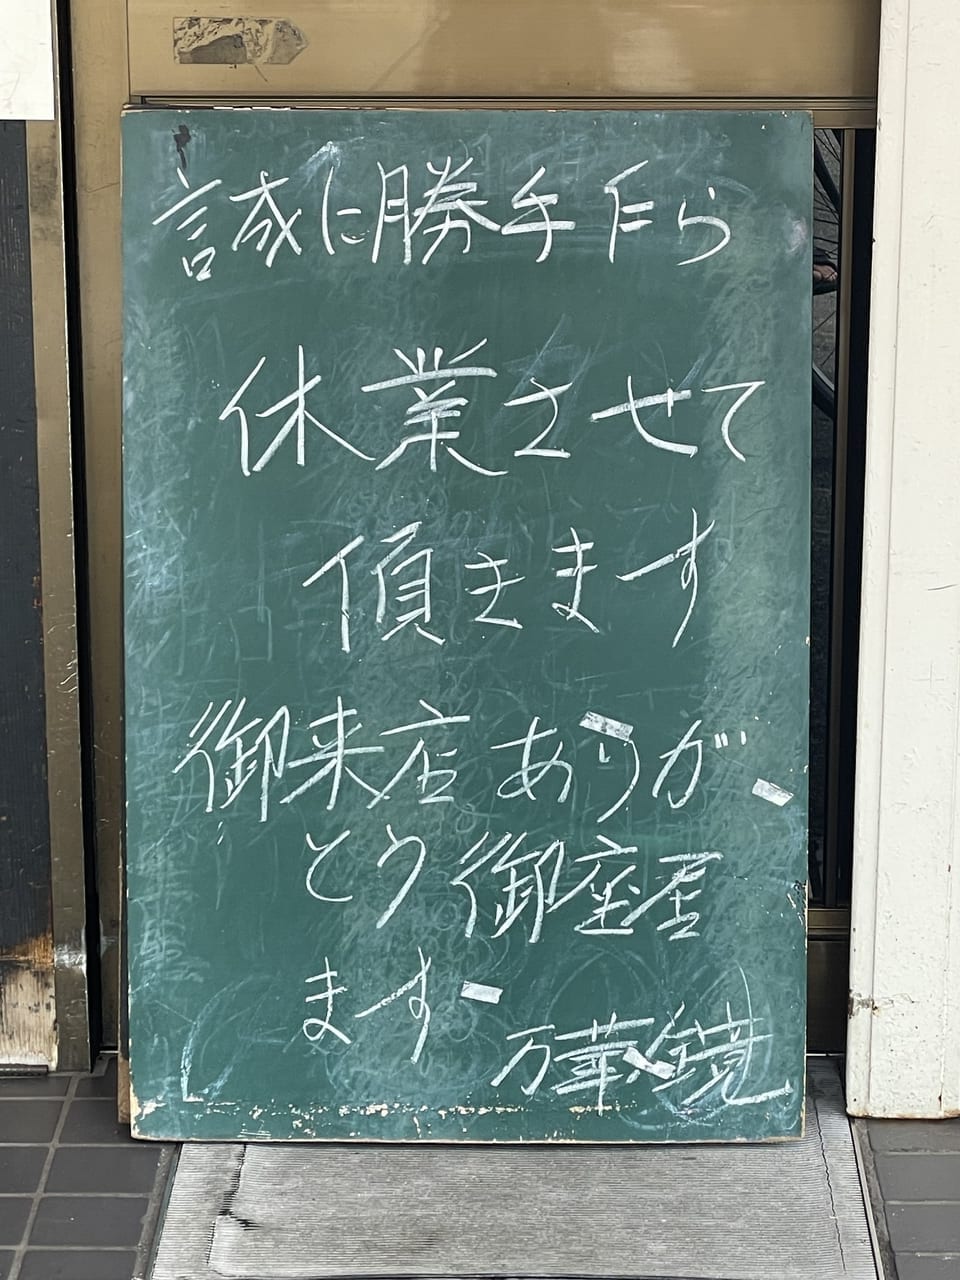 誠に勝手乍ら
休業させて
頂きます
御来店ありが
とう御座居
ます
万華鏡